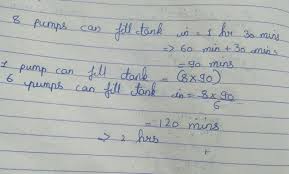 8 pumps can fill tank in = 1 hr 30 mins
=> 60 min + 30 mins
= 90 mins
1 pump can fill tank = (8×90)
6 pumps can fill tank in = 8×90/6
= 120 mins
=> 2 hrs